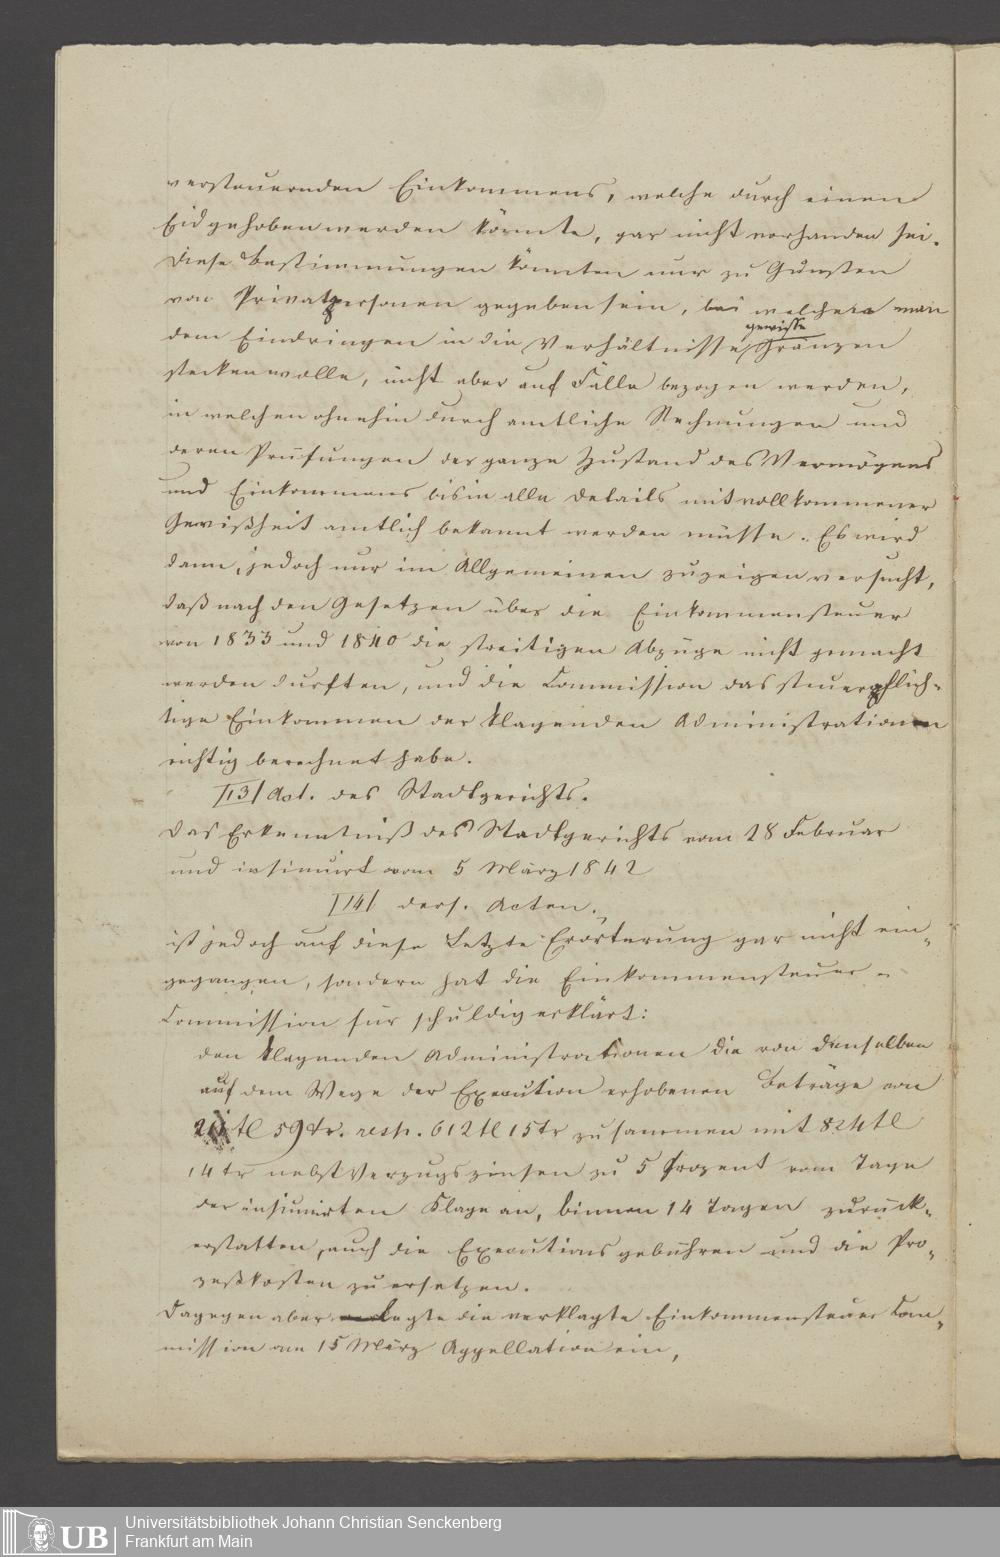 versteuernden Einkommens, welche durch einen
Eid gehoben werden könnte, gar nicht vorhanden sei.
Diese Bestimmungen könnten nur zu Gunsten
von Privatpersonen gegeben sein, bei welchen man
dem Eindringen in die Verhältnisse gewisse Gränzen
stecken wolle, nicht aber auf Fälle bezogen werden,
in welchen ohnehin durch amtliche Rechnungen und
deren Prüfungen der ganze Zustand des Vermögens
und Einkommens bis in alle Details mit vollkommener
Gewißheit amtlich bekannt werden müsse. Es wird
dann, jedoch nur im Allgemeinen zu zeigen versucht,
daß nach den Gesetzen über die Einkommensteuer
von 1833 und 1840 die streitigen Abzüge nicht gemacht
werden durften, und die Commission das steuerpflich-
tige Einkommen der klagenden Administrationen
richtig berechnet habe.
[13] Act. des Stadtgerichts.
Das Erkenntniß des Stadtgerichts vom 28 Februar
und insinuirt vom 5 März 1842
[14] ders. Acten.
ist jedoch auf diese Letzte Erörterung gar nicht ein-
gegangen, sondern hat die Einkommensteuer-
Commission für schuldig erklärt:
den klagenden Administrationen die von denselben
auf dem Wege der Execution erhobenen Beträge von
fl 59 kr. resp. 612 fl 15 kr zusammen mit 824 fl
14 kr nebst Verzugszinsen zu 5 Prozent vom Tage
der insinuirten Klage an, binnen 14 Tagen zurück-
erstatten, auch die Executionsgebühren und die Pro-
zeßkosten zu ersetzen.
Dagegen aber legte die verklagte Einkommensteuer Com-
mission am 15 März Appellation ein,
UB
Universitätsbibliothek Johann Christian Senckenberg
Frankfurt am Main